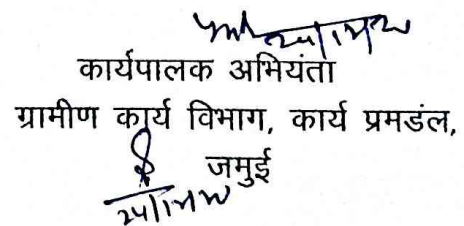 कार्यपालक अभियंता
ग्रामीण कार्य विभाग, कार्य प्रमडंल,
जमुई